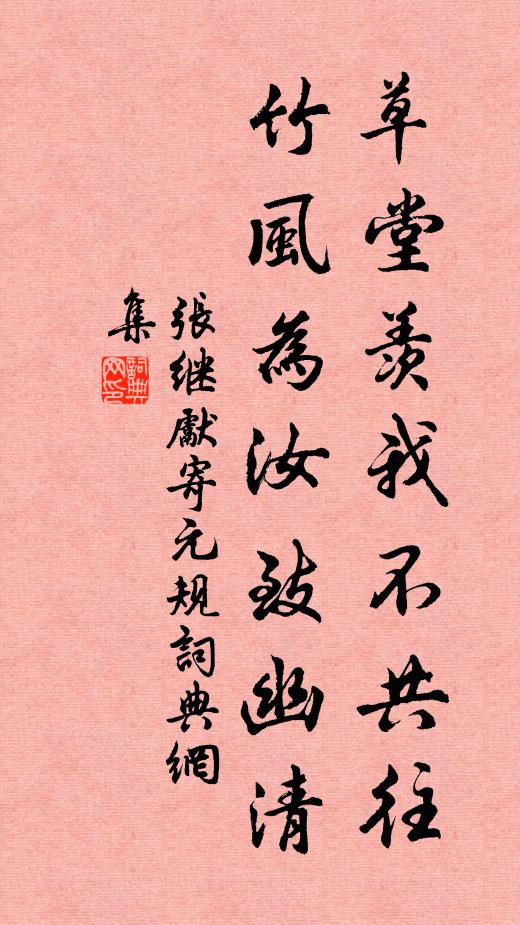 草堂羨我不共往
竹風為汝致幽清
張继獻寄元规詞典網
集
詞典
网印